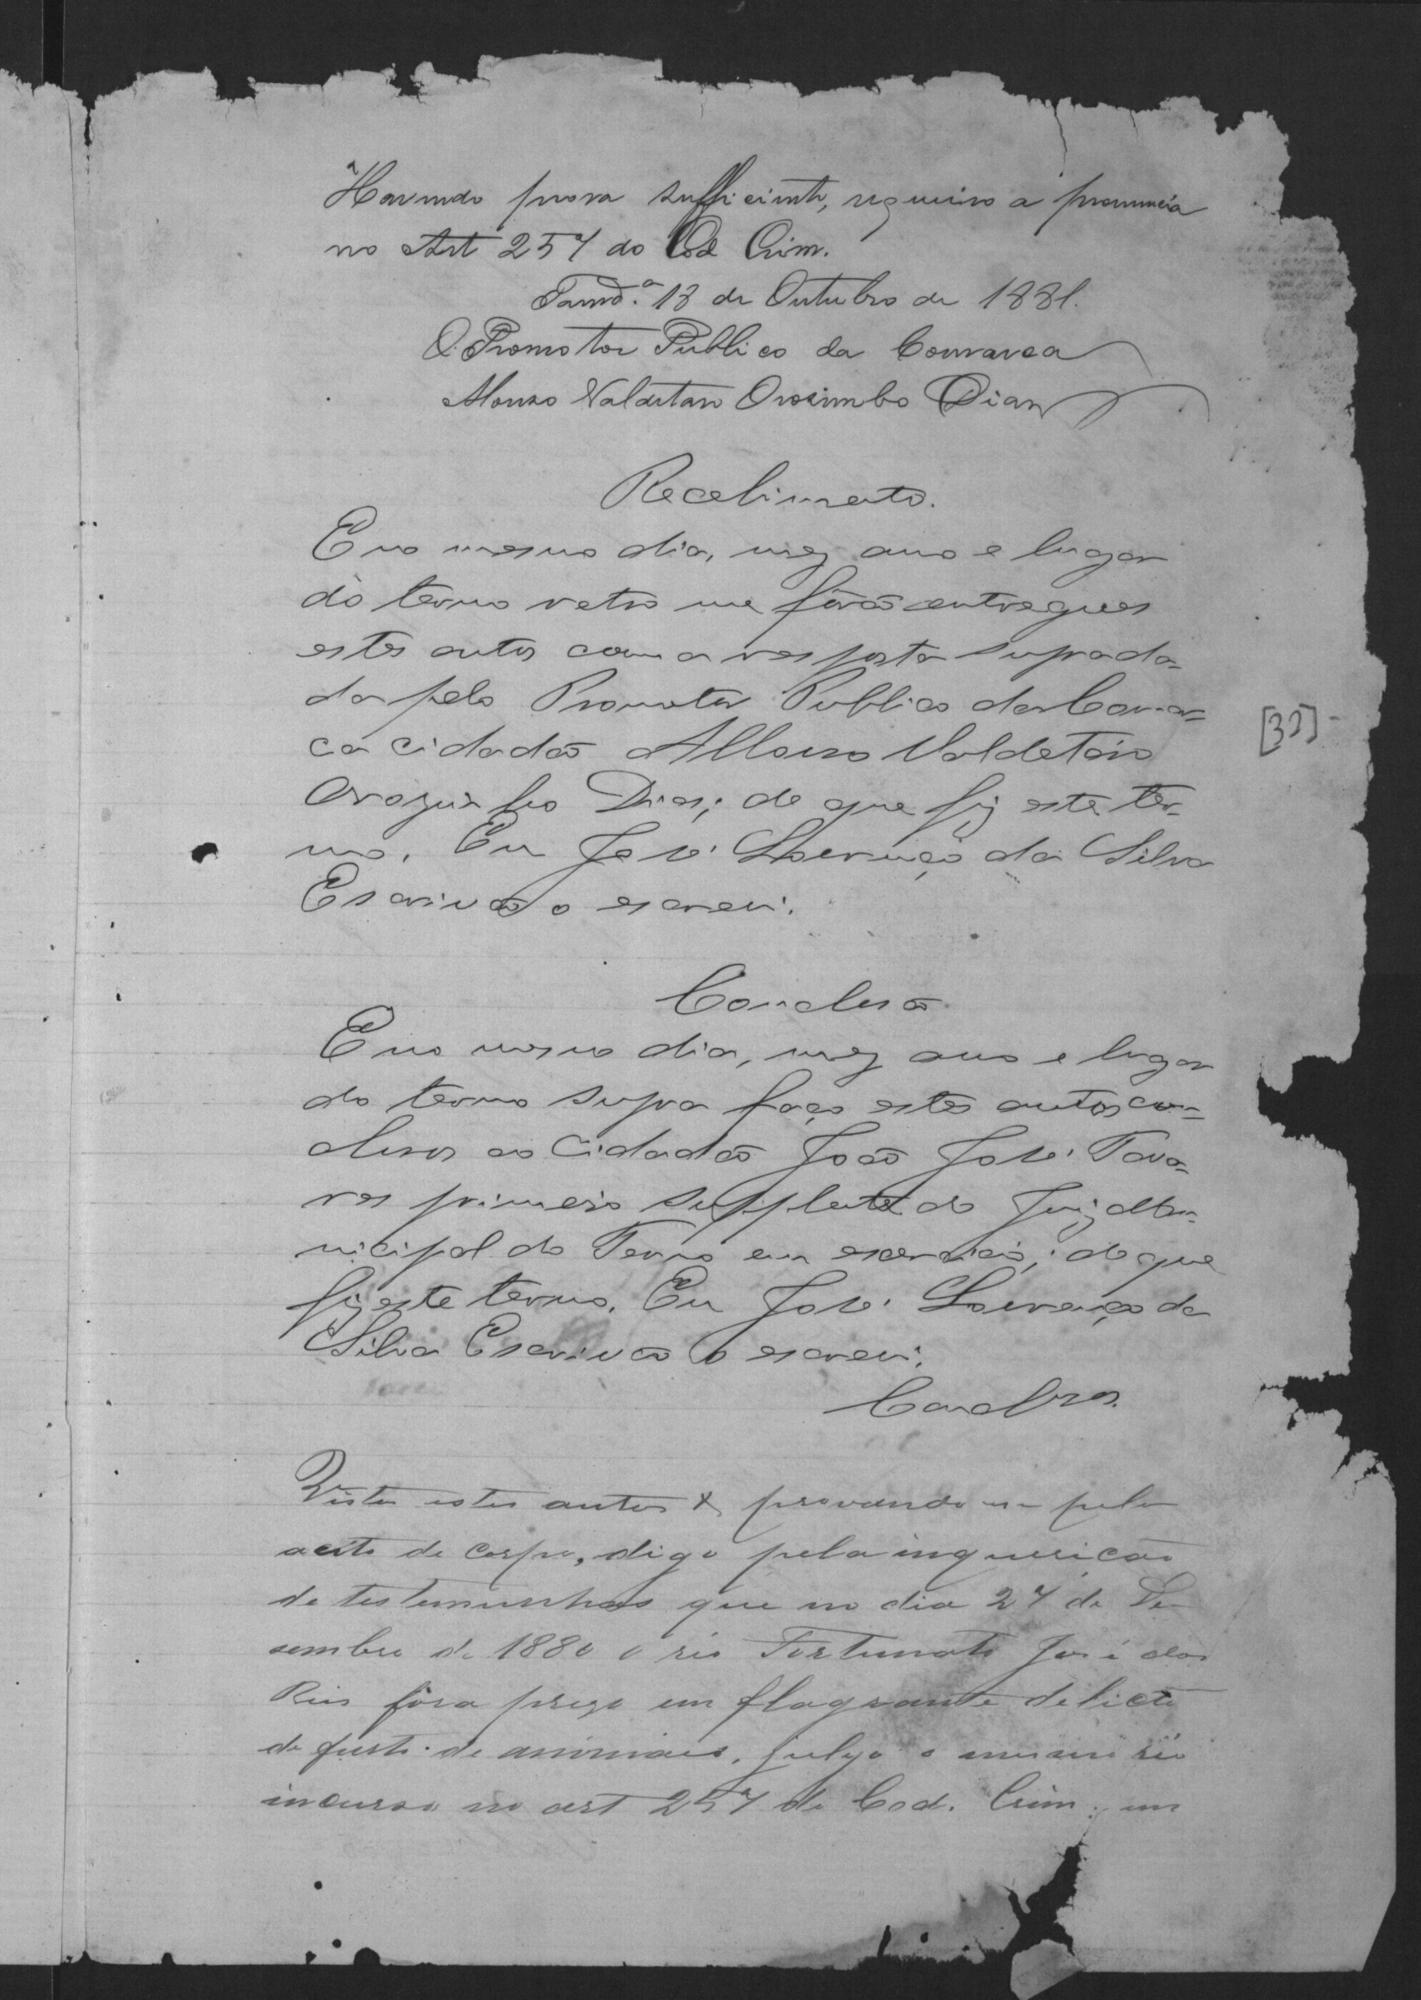 Havendo prova sufficiente, requeiro a pronuncia
no Art 257 do Cod Crim.
Tamd.ª 13 de Outubro de 1881.
O Promotor Publico da Comarca
Alonso Valdetaro Orosimbo Dias
Recebimento.
E no mesmo dia, mez anno e lugar
do termo retro me fôrão entregues
estes autos com a resposta supra da-
da pelo Promotor Publico da Comar=
ca cidadão Allonso Valdetáro
Orozimbo Dias; de que fiz este ter-
mo. Eu José Lourenço da Silva
Escrivão o escrevi.
[33]
Conclusão
E no mesmo dia, mez anno e lugar
do termo supra faço estes autos con=
clusos ao Cidadão João José Tava-
res primeiro supplente do Juiz Mu-
nicipal do Termo em exercicio; de que
fiz este termo. Eu José Lourenço da
Silva Escrivão o escrevi.
Conclusos.
Vistos estes autos & provando-se pelo
auto de corpo, digo pela inquerição
de testemunhas que no dia 27 de De
sembro de 1880 o réo Fortunato José dos
Reis fôra prezo em flagrante delicto
de furto de animaes, julgo o mesmo réo
incurso no art 257 do Cod. Crim. em